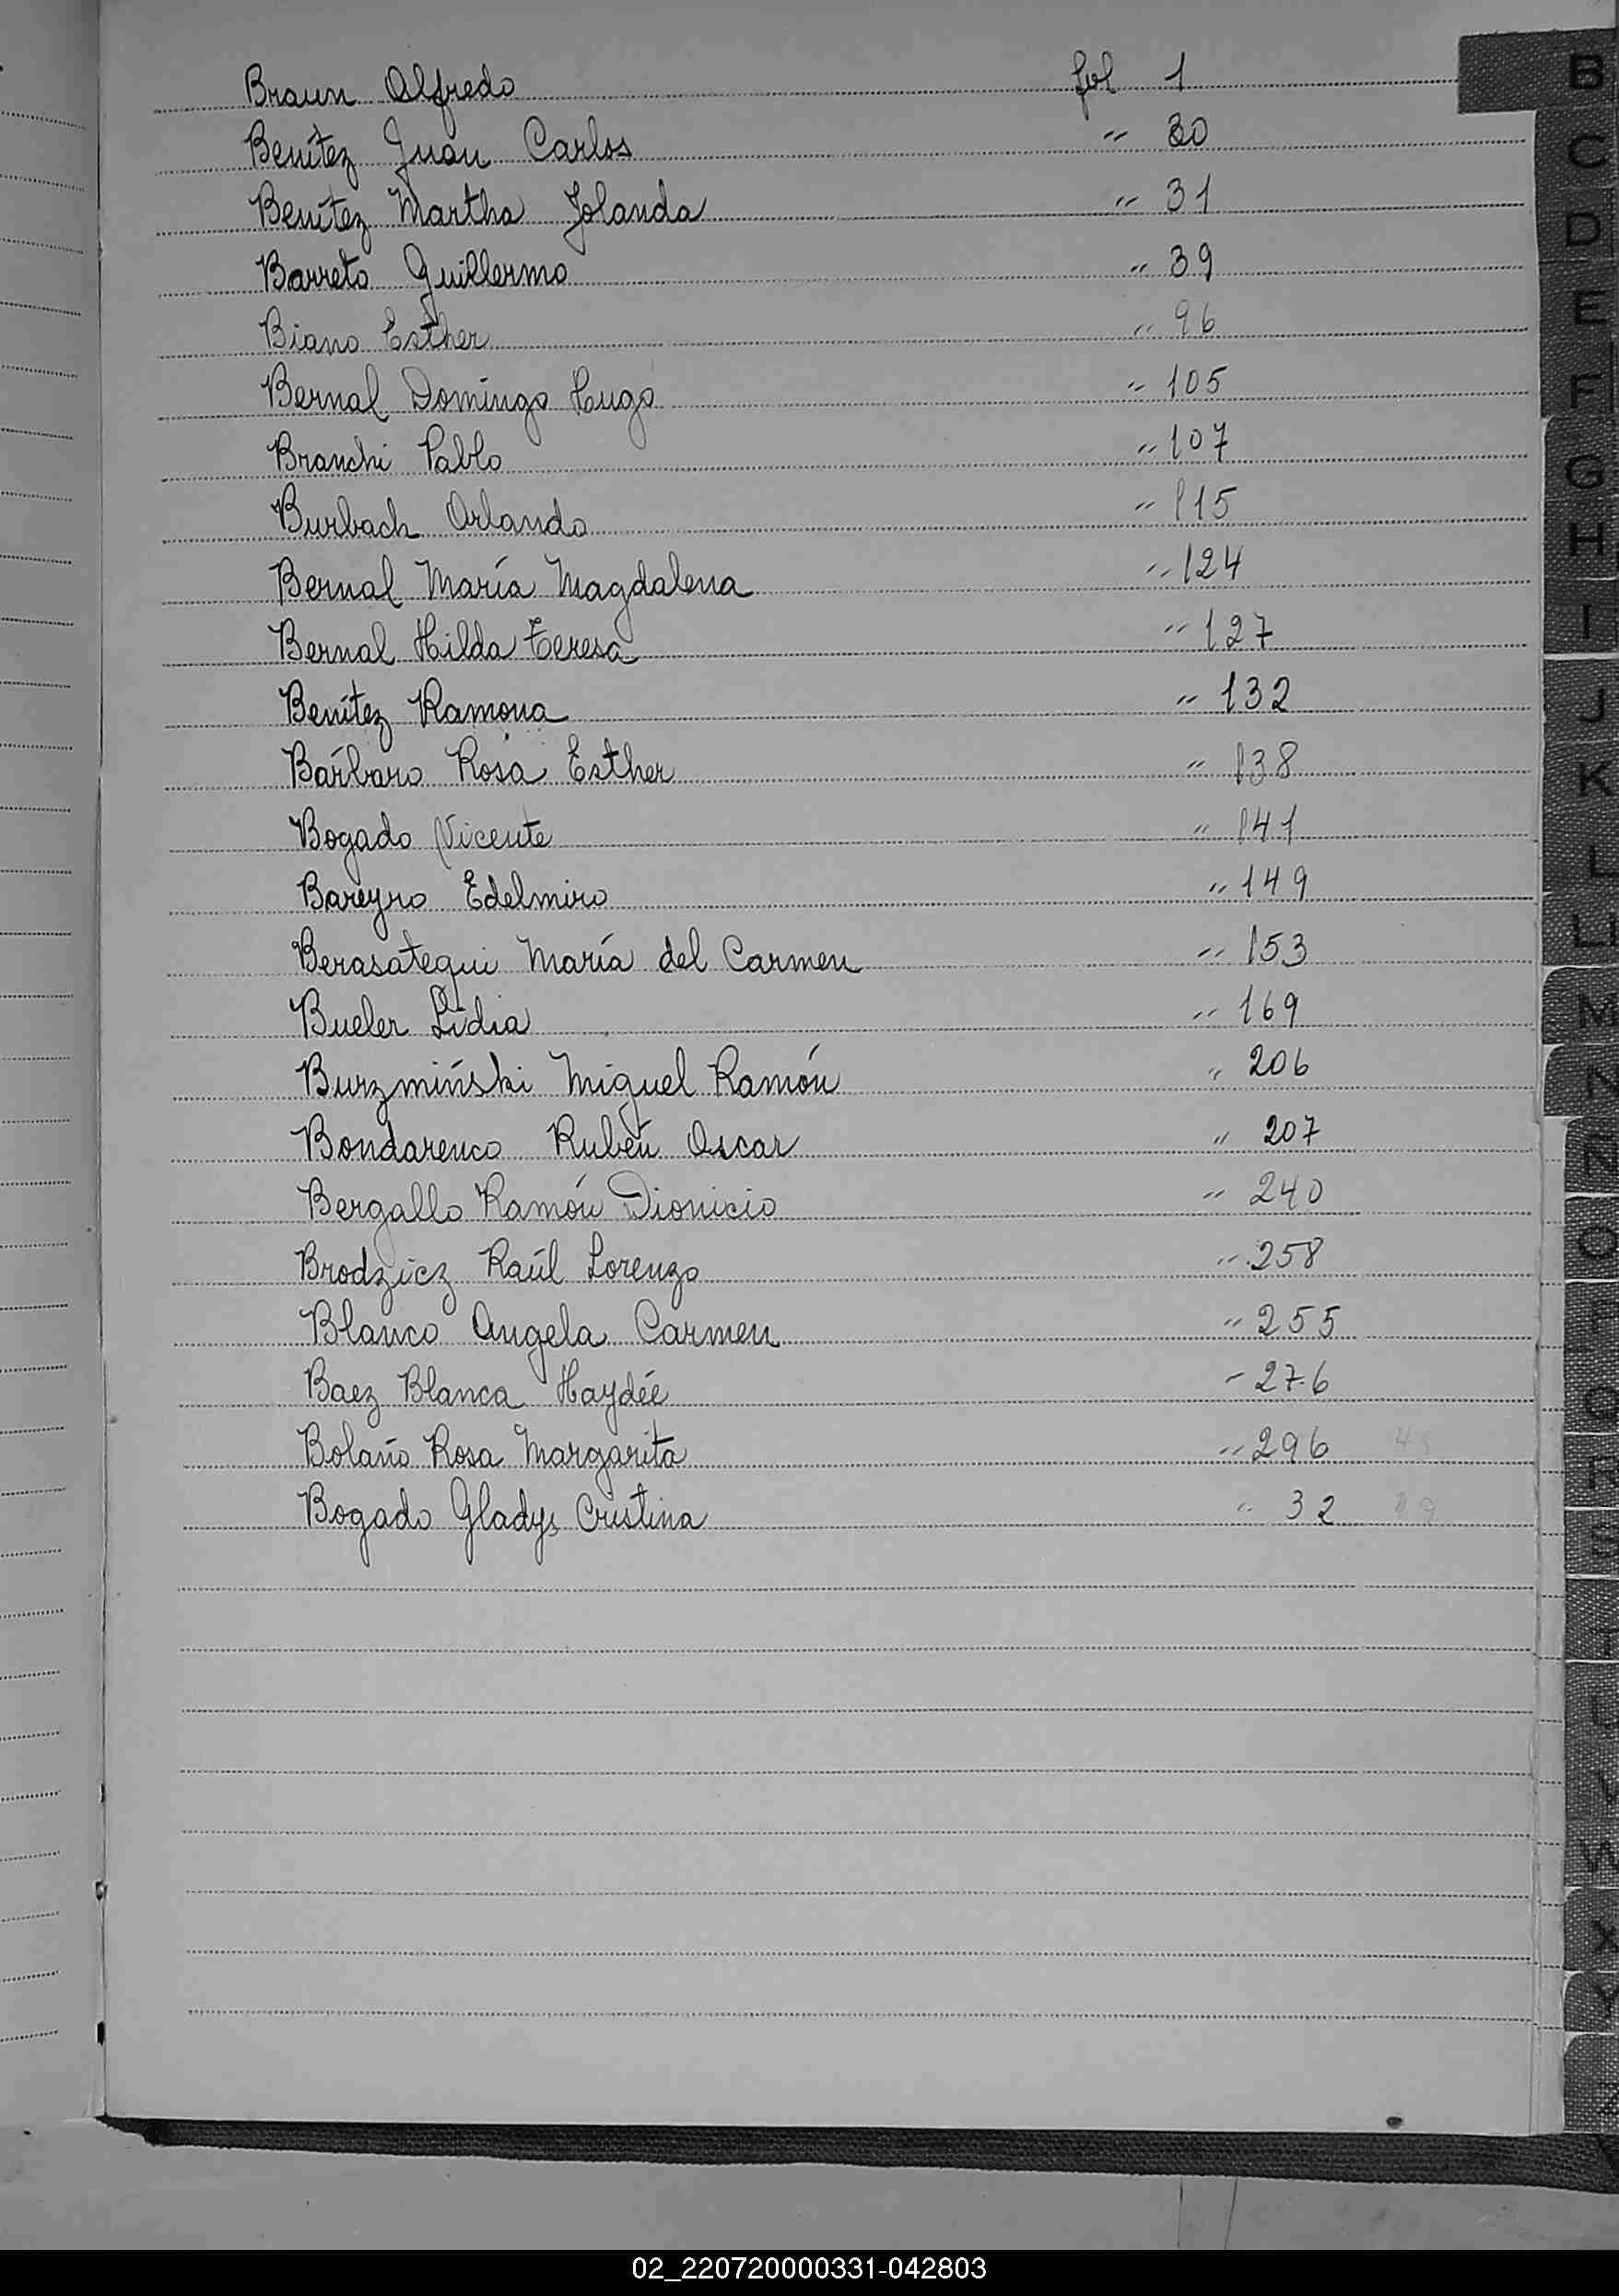 Braun Alfredo fol 1
Benítez Juan Carlos " 30
Benítez Martha Jolanda " 31
Barreto Guillermo " 39
Biano Esther " 96
Bernal Domingo Hugo " 105
Branchi Pablo " 107
Burbach Orlando " 115
Bernal María Magdalena " 124
Bernal Hilda Teresa " 127
Benítez Ramona " 132
Bárbaro Rosa Esther " 138
Bogado Vicente " 141
Bareyro Edelmiro " 149
Berasategui María del Carmen " 153
Bueler Lidia " 169
Burzmiński Miguel Ramón " 206
Bondarenco Rubén Oscar " 207
Bergallo Ramón Dionicio " 240
Brodzicz Raúl Lorenzo " 258
Blanco Angela Carmen " 255
Baez Blanca Haydée " 276
Bolaño Rosa Margarita " 296
Bogado Gladys Cristina " 32
B
C
D
E
F
G
H
I
J
K
L
LL
M
N
Ñ
O
P
Q
R
S
T
U
V
W
X
Y
Z
02_220720000331-042803